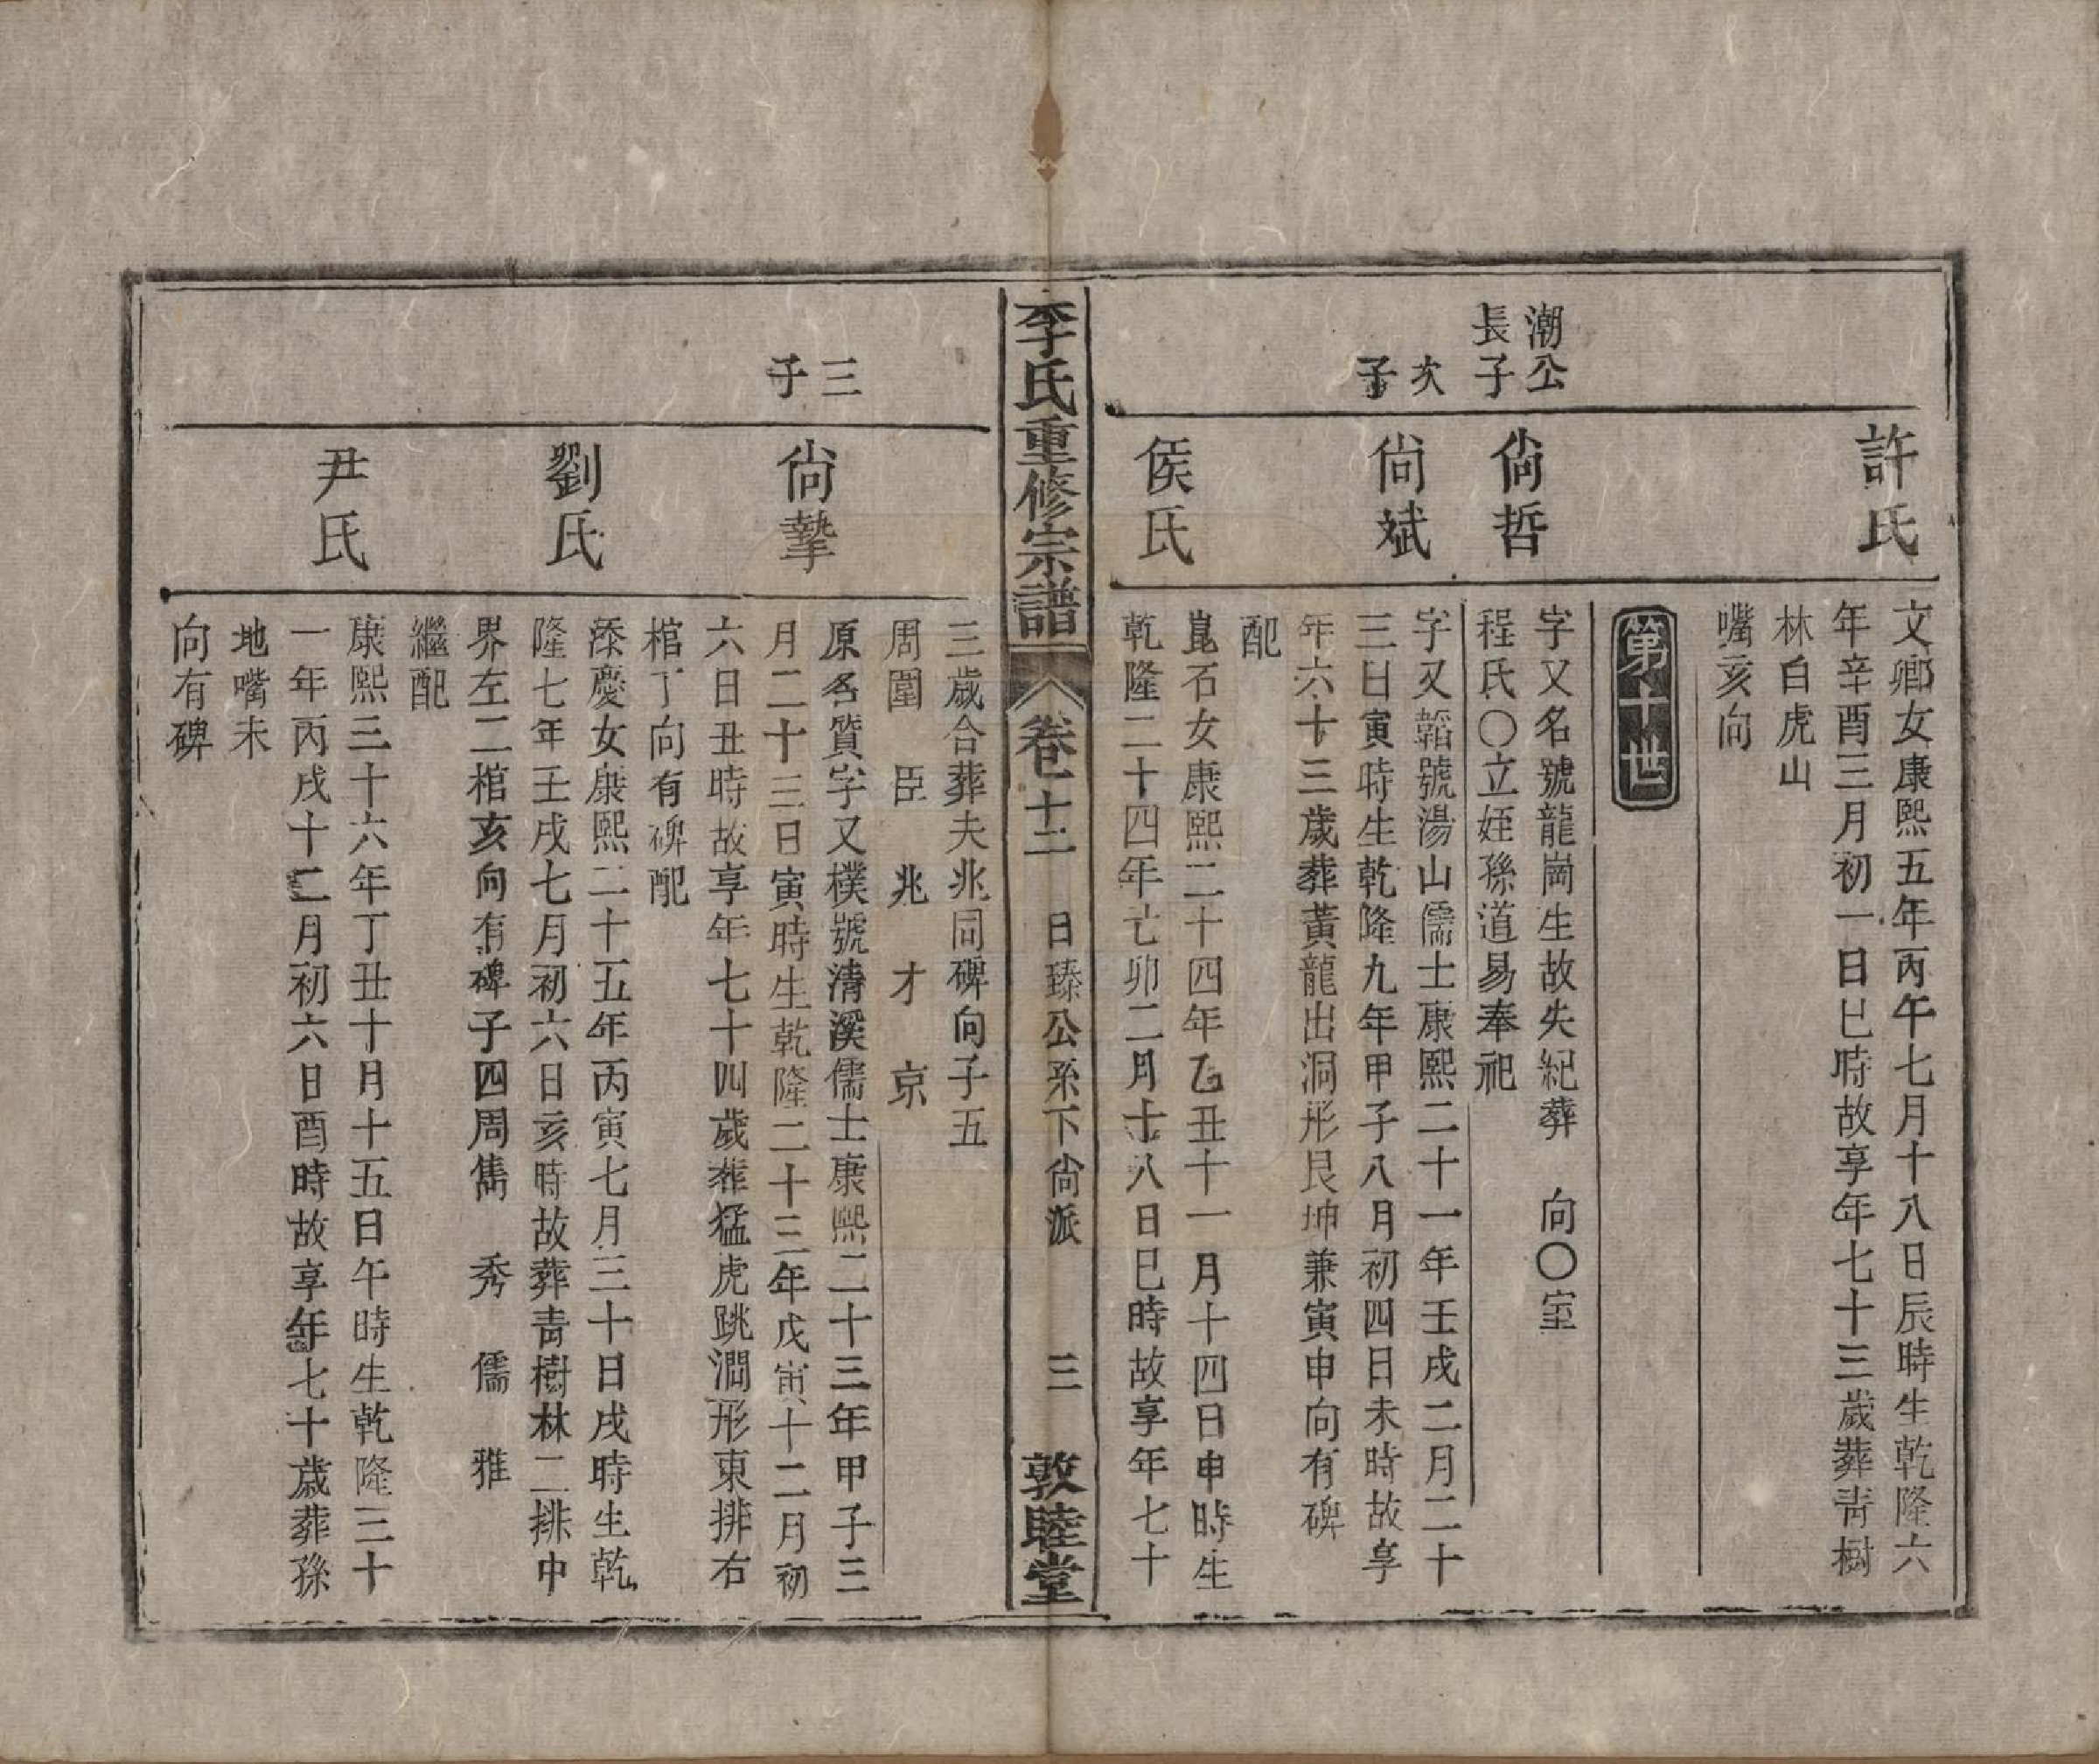 許氏
文卿女康熙五年丙午七月十八日辰時生乾隆六
年辛酉三月初一日巳時故享年七十三歲葬青樹
林白虎山
嘴亥向
第十世
潮公
長子
尙哲
字又名號龍崗生故失紀葬 向〇室
程氏〇立姪孫道易奉祀
次
子
尙斌
字又韜號湯山儒士康熙二十一年壬戌二月二十
三日寅時生乾隆九年甲子八月初四日未時故享
年六十三歲葬黃龍出洞形艮坤兼寅申向有碑
配
侯氏
崑石女康熙二十四年乙丑十一月十四日申時生
乾隆二十四年亡卯二月十八日巳時故享年七十
李氏重修宗譜 卷十二 日臻公系下尙派 三 敦睦堂
三歲合葬夫兆同碑向子五
周圍 臣 兆 才 京
三
子
尙摯
原名質字又樸號清溪儒士康熙二十三年甲子三
月二十三日寅時生乾隆二十三年戊寅十二月初
六日丑時故享年七十四歲葬猛虎跳澗形東排右
棺丁向有碑配
劉氏
添慶女康熙二十五年丙寅七月三十日戌時生乾
隆七年壬戌七月初六日亥時故葬靑樹林二排中
界左二棺亥向有碑子四周雋 秀 儒 雅
繼配
尹氏
康熙三十六年丁丑十月十五日午時生乾隆三十
一年丙戌十二月初六日酉時故享年七十歲葬孫
地嘴未
向有碑